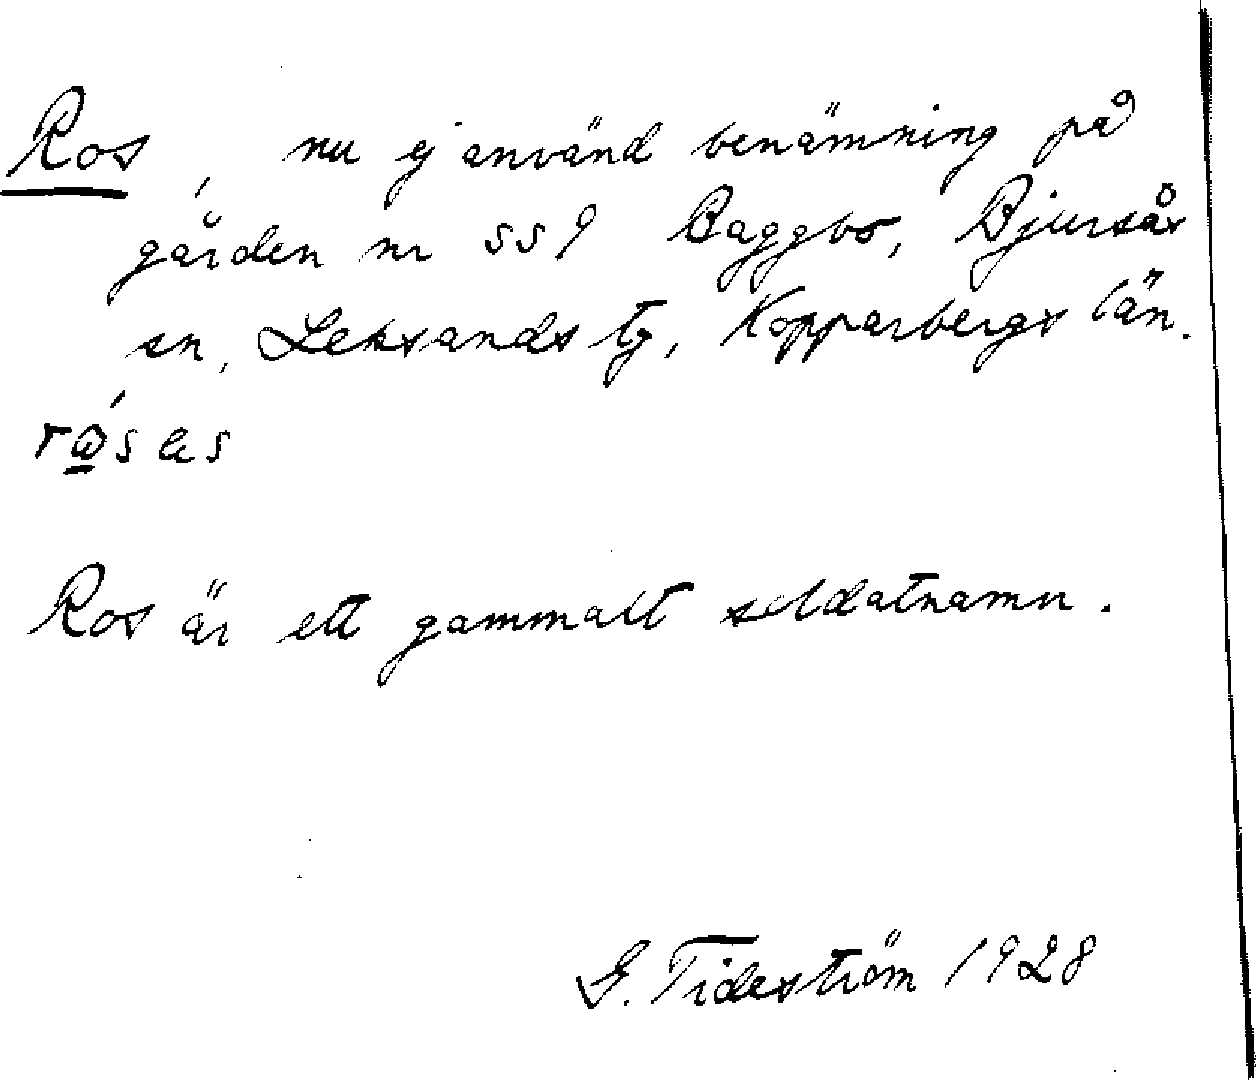 Ros, nu ej använd benämning på
gården nr 559 Baggbo, Bjursås
sn, Leksands tg, Kopparbergs län.
Ros är ett gammalt soldatnamn.
G. Tideström 1928